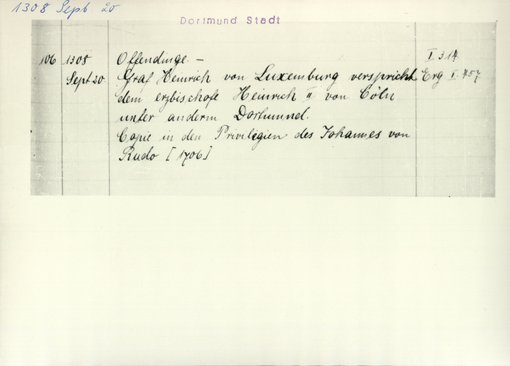 1308 Sept 20
Dortmund Stadt
106 1308 Offendinge. — I 314
Sept 20 Graf Heinrich von Luxemburg verspricht Erg I. 457
dem erzbischofe Heinrich II von Cöln
unter anderm Dortmund.
Copie in den Privilegien des Johannes von
Rudo [1706]